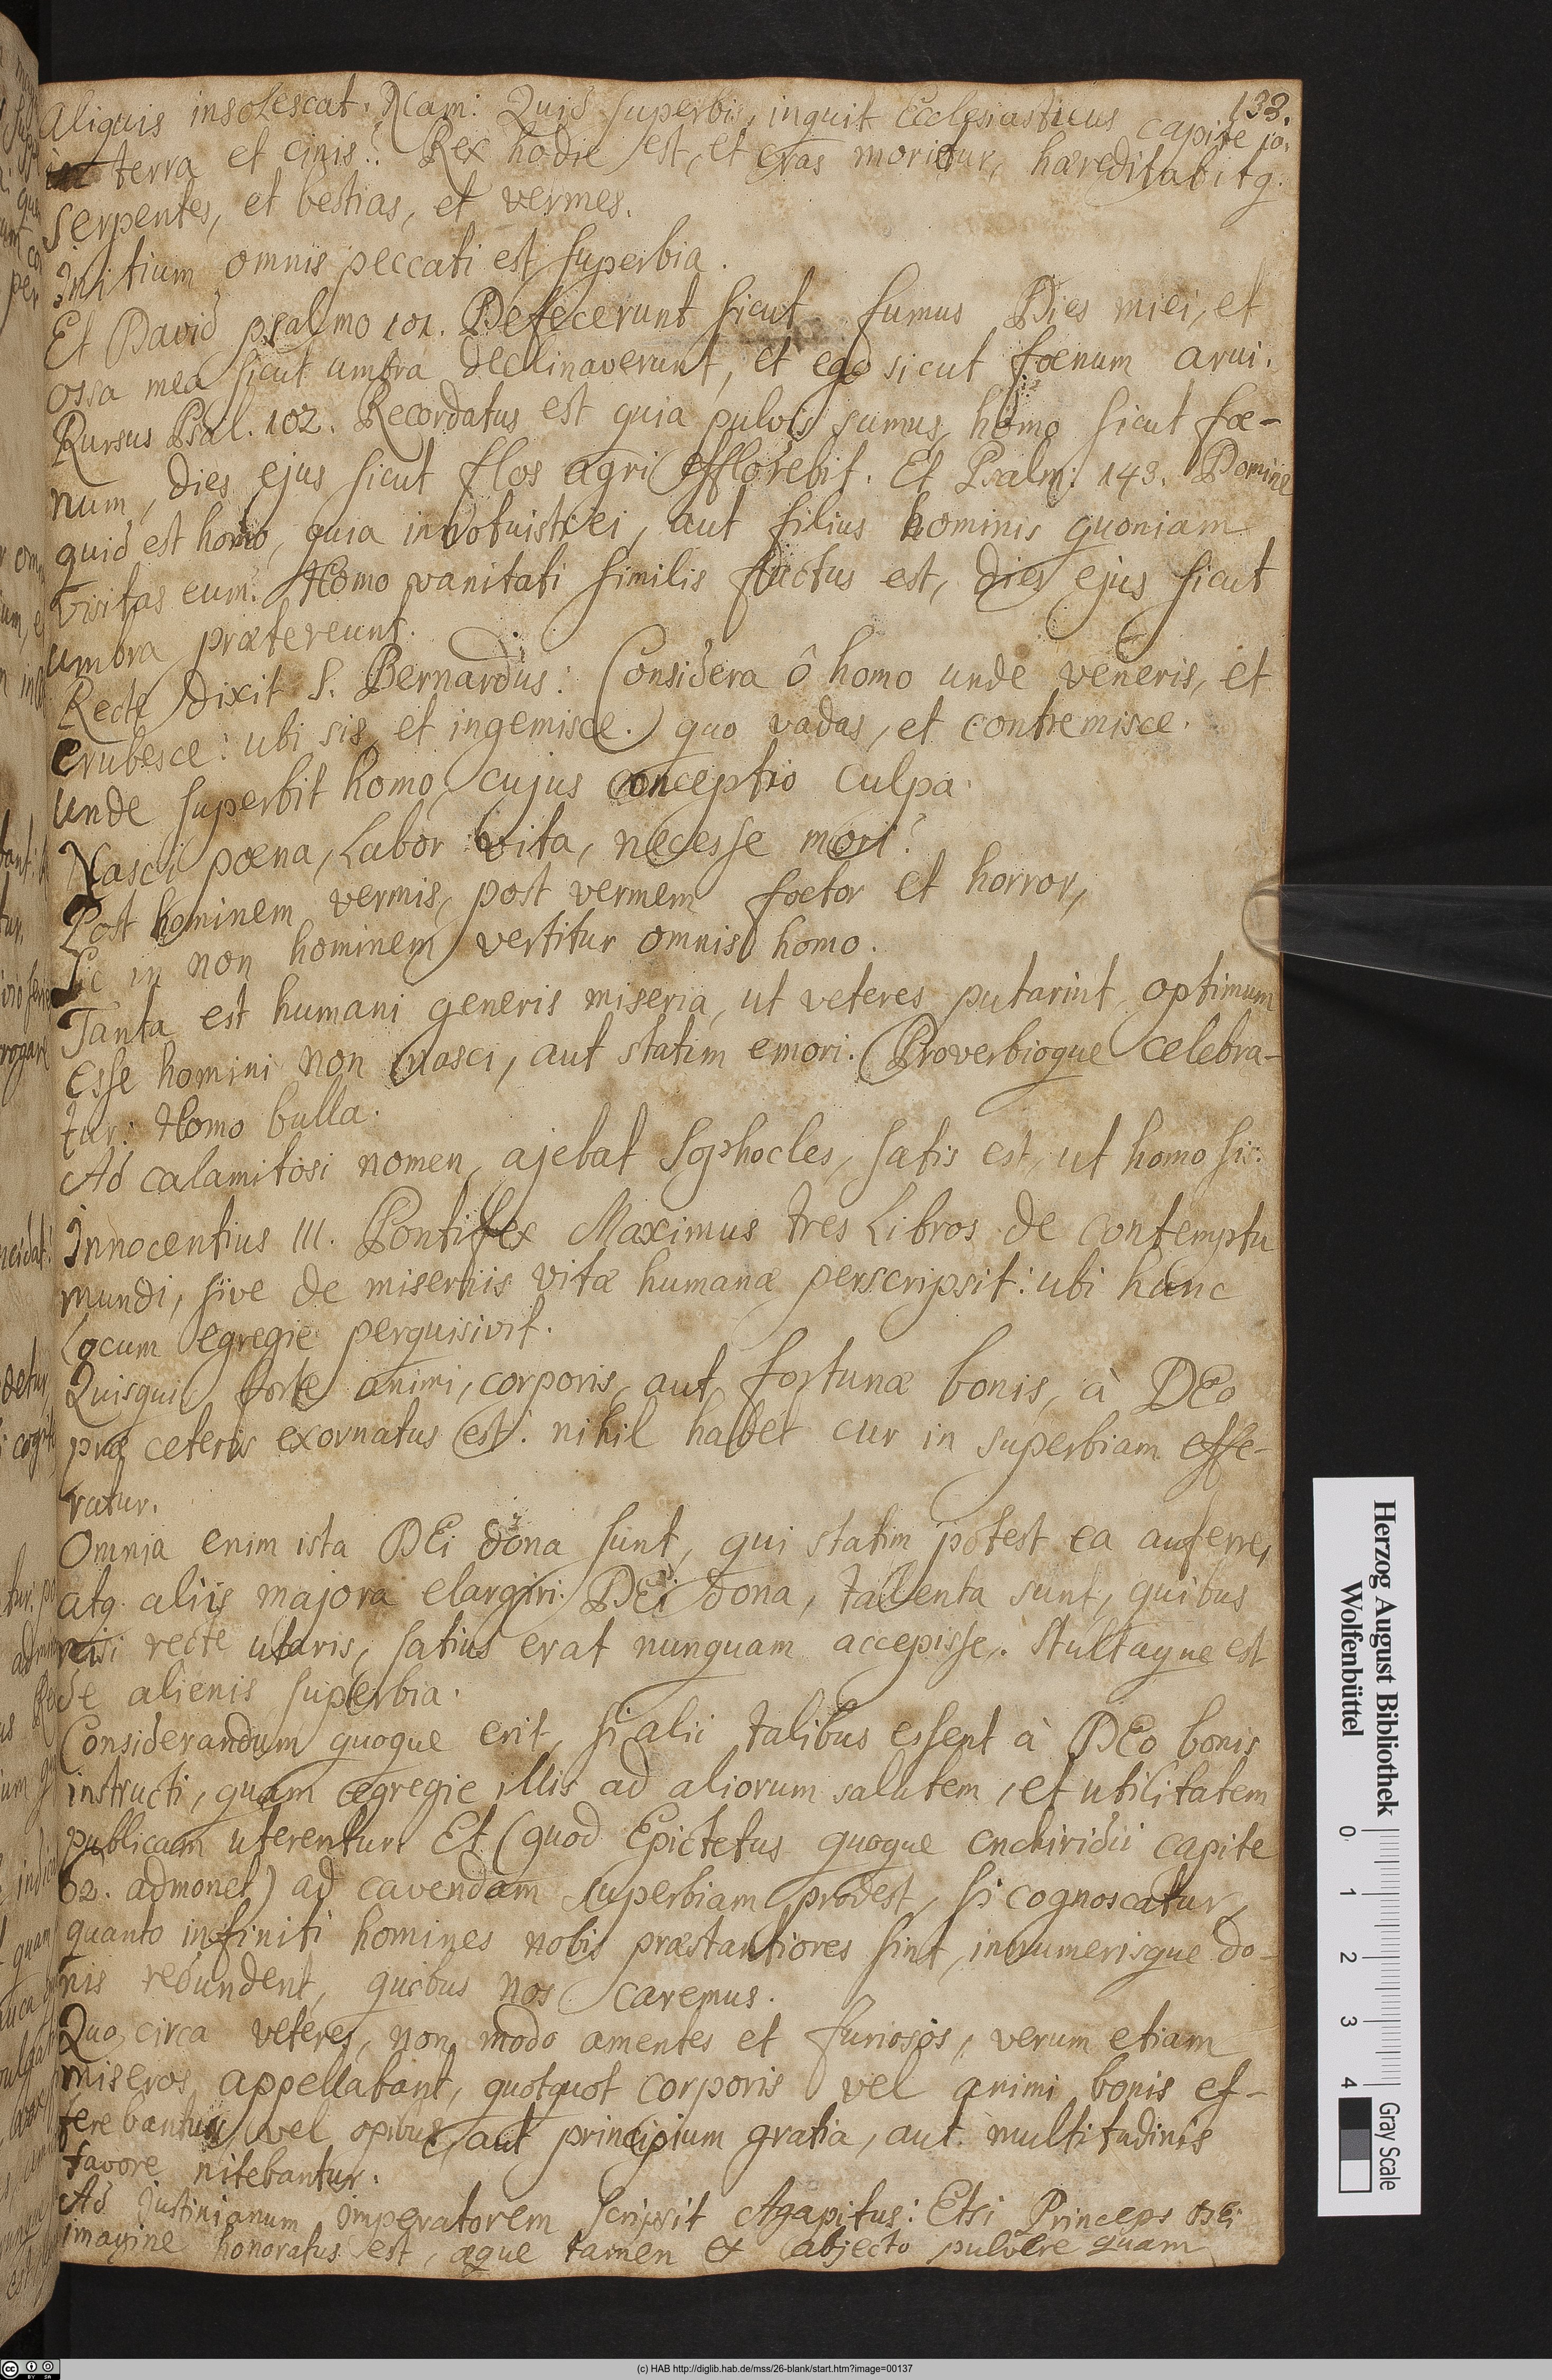 133.
Aliquis insolescat. Nam: Quid superbis, inquit Ecclesiasticus capite 10.
terra et cinis? Rex hodie est, et cras morietur, hæreditabitq.
serpentes, et bestias, et vermes.
Initium omnis peccati est superbia.
Et David psalmo 101. Defecerunt sicut fumus Dies miei, et
ossa mea sicut umbra declinaverunt, et ego sicut fœnum arui.
Rursus Psal. 102. Recordatus est quia pulvis sumus, homo sicut fœ-
num, dies ejus sicut flos agri efflorebit. Et Psalm: 143. Domine
quid est homo, quia innotuisti ei, aut filius hominis quoniam
visitas eum? Homo vanitati similis factus est, dies ejus sicut
umbra prætereunt.
Recte dixit S. Bernardus: Considera ô homo unde veneris, et
erubesce: ubi sis, et ingemisce. quo vadas, et contremisce.
Unde superbit homo, cujus conceptio culpa.
Nasci pœna, Labor vita, necesse mori?
Post hominem vermis, post vermem fœtor et horror,
Sic in non hominem vertitur omnis homo.
Tanta est humani generis miseria, ut veteres putarint optimum
esse homini non nasci, aut statim emori. Proverbioque celebra-
tur: Homo bulla.
Ad calamitosi nomen, ajebat Sophocles, satis est, ut homo sis.
Innocentius III. Pontifex Maximus tres Libros de contemptu
mundi, sive de miseriis vitæ humanæ perscripsit: ubi hunc
locum egregie perquisivit.
Quisquis forte animi, corporis, aut fortunæ bonis, à DEo
præ ceteris exornatus est: nihil habet cur in superbiam effe-
ratur.
Omnia enim ista DEi dona sunt, qui statim potest ea auferre,
atq. aliis majora elargiri. DEi dona, talenta sunt, quibus
nisi recte utaris, satius erat nunquam accepisse. Stultaque est
de alienis superbia.
Considerandum quoque erit, si alii talibus essent à DEo bonis
instructi, quam egregie illis ad aliorum salutem, et utilitatem
publicam uterentur. Et (quod Epictetus quoque enchiridii capite
62. admonet) ad cavendam superbiam prodest, si cognoscatur,
quanto infiniti homines nobis præstantiores sint, innumerisque do-
nis redundent, quibus nos caremus.
Quo circa veteres, non modo amentes et furiosos, verum etiam
miseros appellabant, quotquot corporis vel animi bonis ef-
ferebantur, vel opibus, aut principium gratia, aut multitudinis
favore nitebantur.
Ad Justinianum Imperatorem scripsit Agapitus: Etsi Princeps DEi
imagine honoratus est, æque tamen & abjecto pulvere quam
Herzog August Bibliothek
Wolfenbüttel
0 1 2 3 4
Gray Scale
(c) HAB http://diglib.hab.de/mss/26-blank/start.htm?image=00137